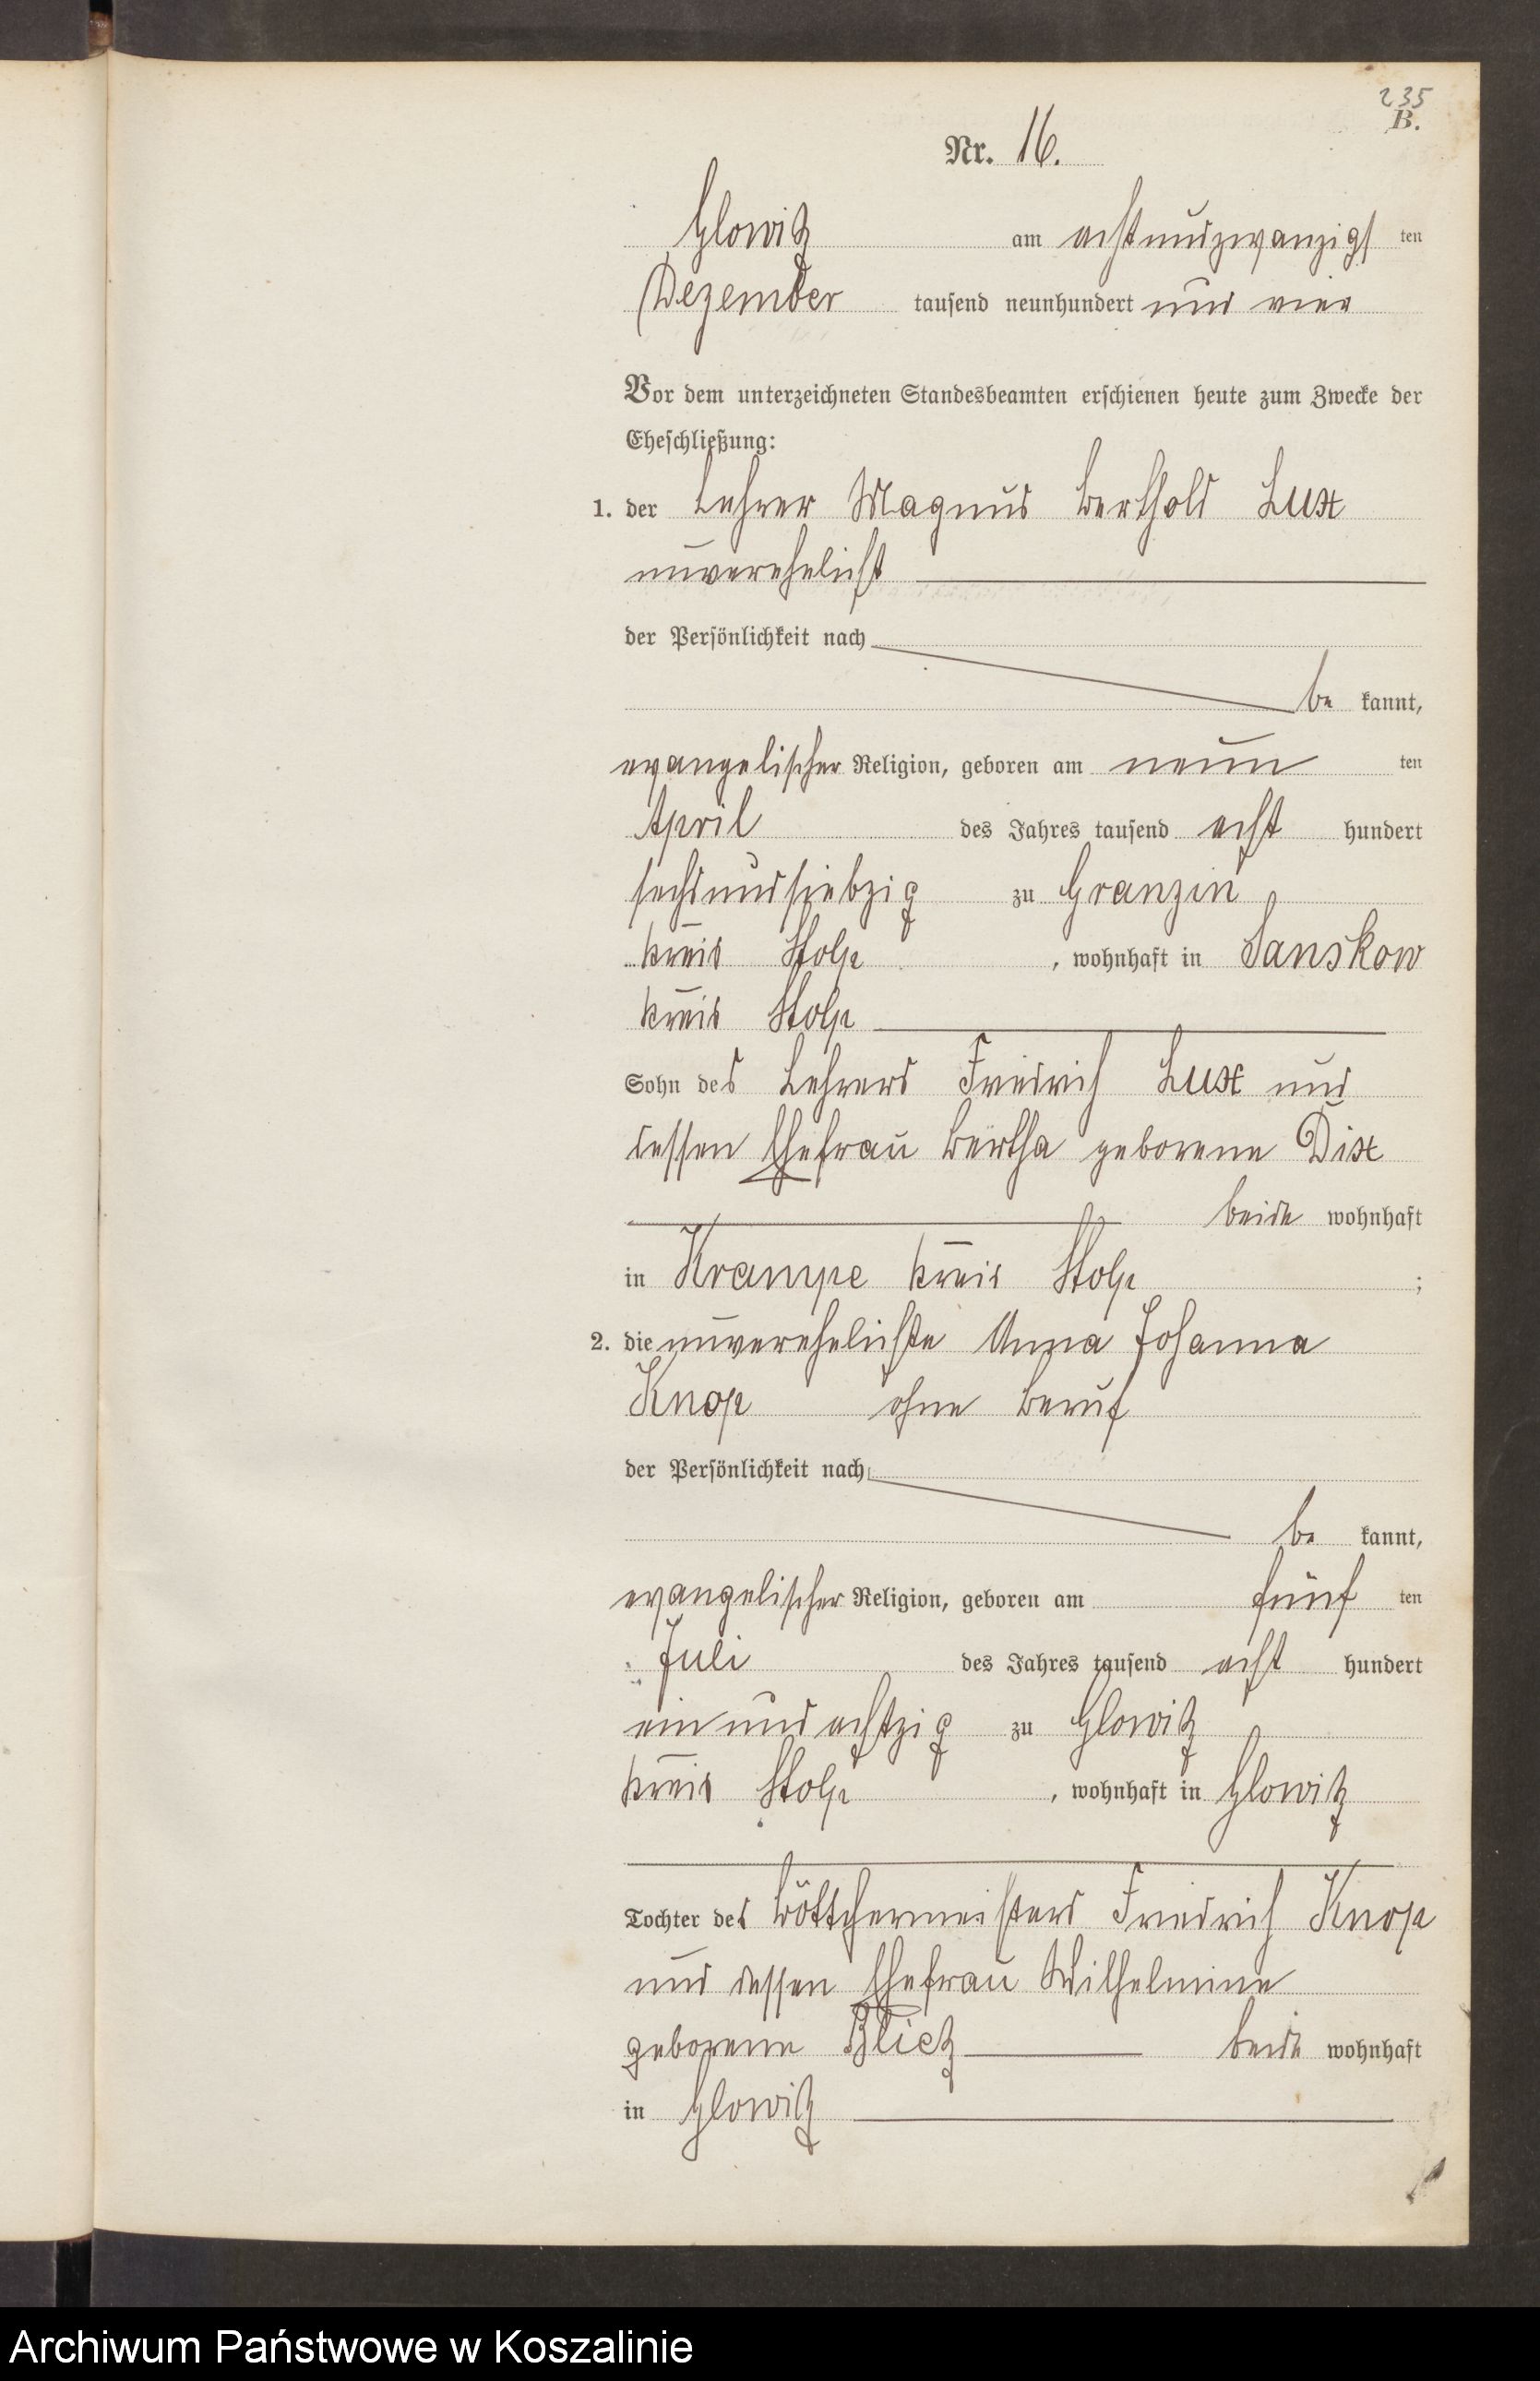 235
B.
Nr. 16.
Glowitz am achtundzwanzigst ten
Dezember tausend neunhundert und vier
Vor dem unterzeichneten Standesbeamten erschienen heute zum Zwecke der
Eheschließung:
1. der Lehrer Magnus Berthold Lux
unverehelicht
der Persönlichkeit nach
be kannt,
evangelischer Religion, geboren am neun ten
April des Jahres tausend acht hundert
sechsundsiebzig zu Granzin
Kreis Stolp , wohnhaft in Sanskow
Kreis Stolp
Sohn des Lehrers Friedrich Lux und
dessen Ehefrau Bertha geborene Dix
beide wohnhaft
in Krampe Kreis Stolp ;
2. die unverehelichte Anna Johanna
Knop ohne Beruf
der Persönlichkeit nach
be kannt,
evangelischer Religion, geboren am fünf ten
Juli des Jahres tausend acht hundert
ein und achtzig zu Glowitz
Kreis Stolp , wohnhaft in Glowitz
Tochter des Böttchermeisters Friedrich Knop
und dessen Ehefrau Wilhelmine
geborene Blietz beide wohnhaft
in Glowitz
Archiwum Państwowe w Koszalinie